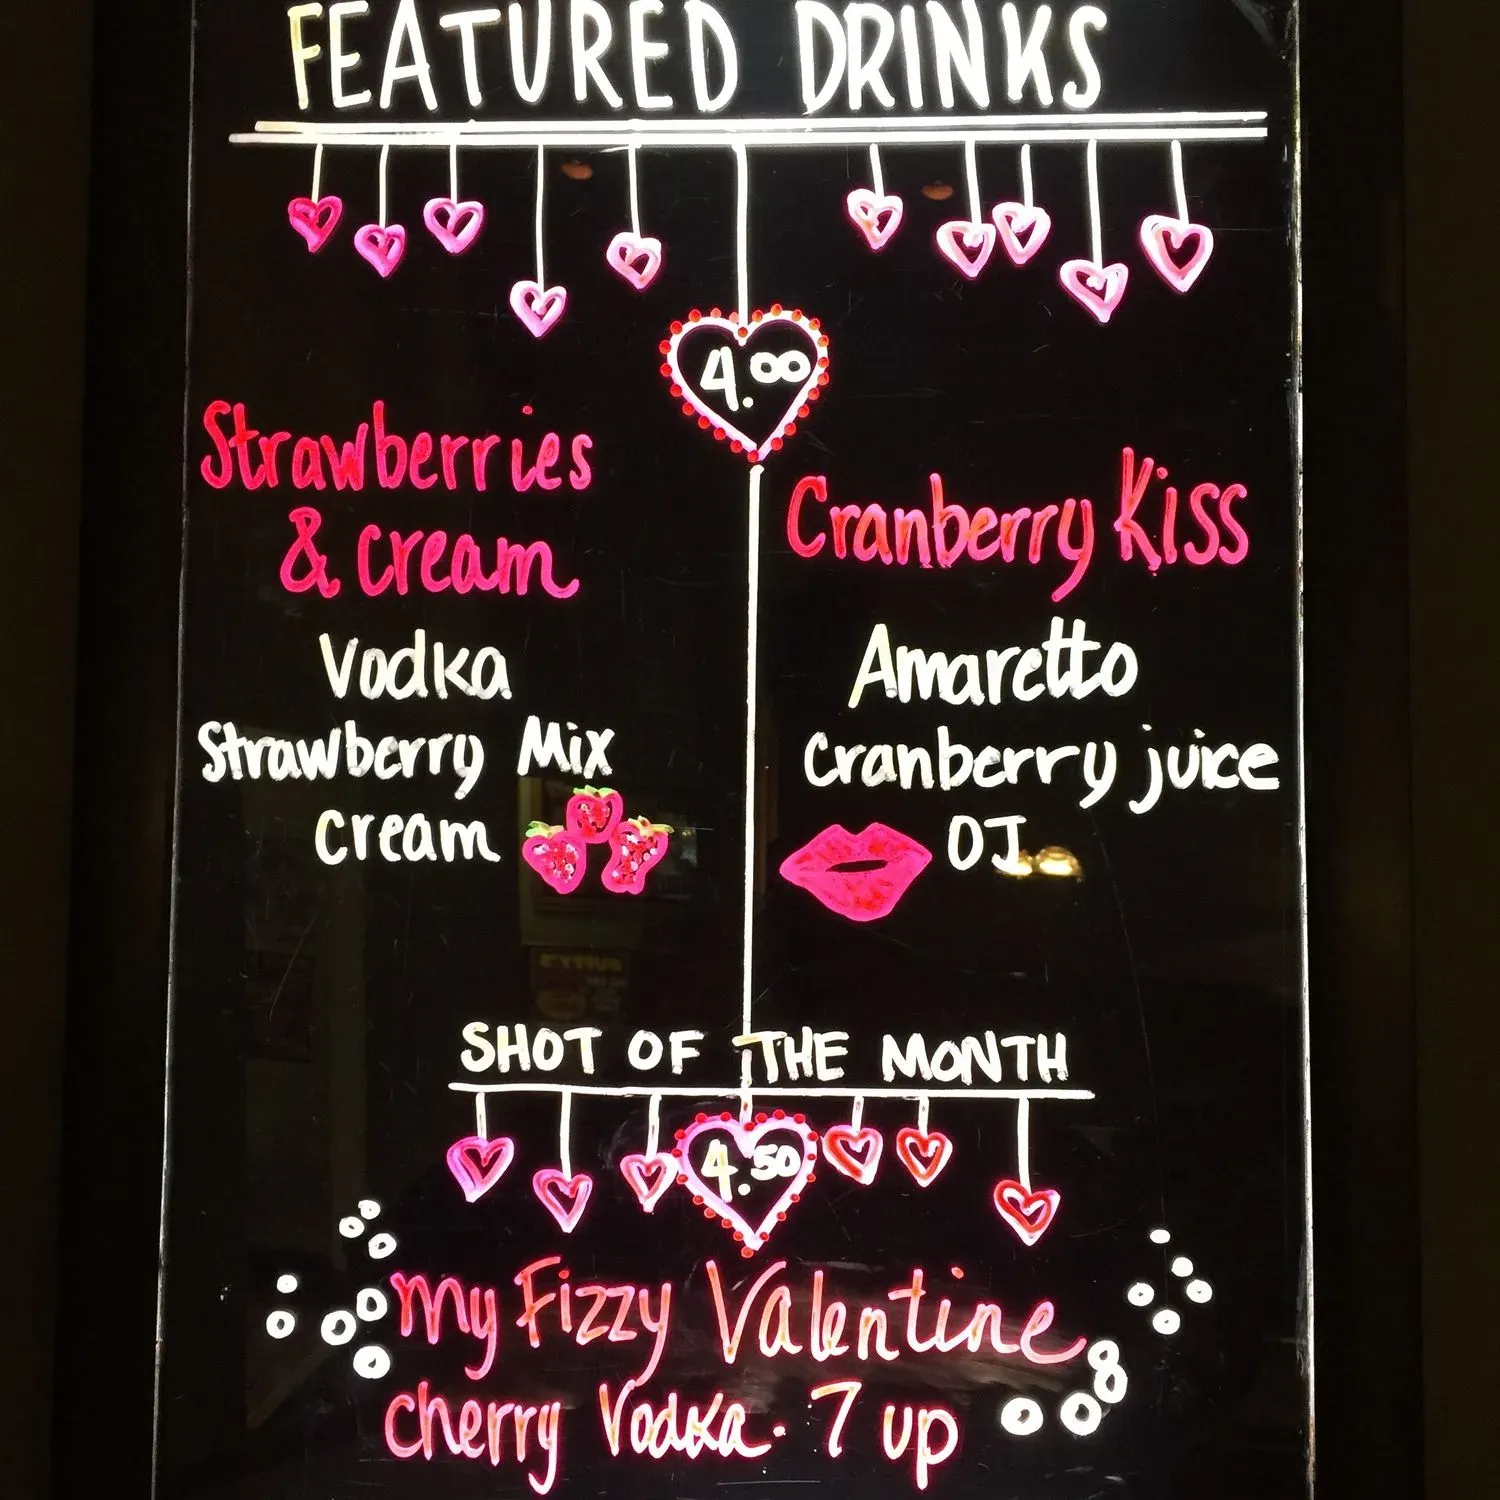 FEATURED DRINKS
4.00
Strawberries
& cream
Vodka
Strawberry Mix
cream
Cranberry Kiss
Amaretto
Cranberry juice
OJ
SHOT OF THE MONTH
4.50
my Fizzy Valentine
cherry Vodka · 7 up